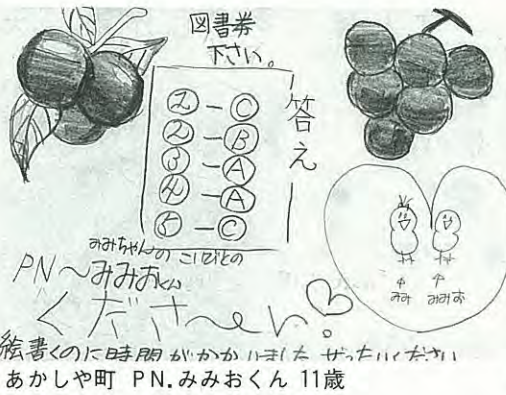 図書券
下さい。
答え
②-Ⓒ
②-Ⓑ
③-Ⓐ
④-Ⓐ
⑤-Ⓒ
みみちゃんの こいびとの
PN~みみおくん
くださ~い♡
みみ
みみお
絵書くのに時間がかかりました ぜったいください
あかしや町 PN.みみおくん 11歳